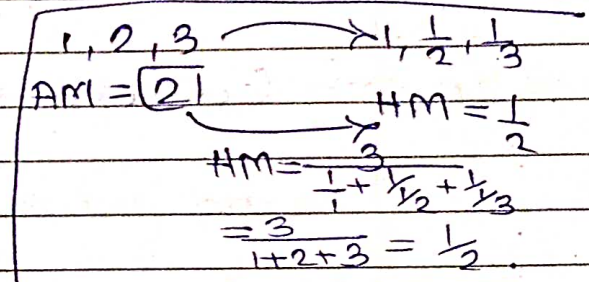 1, 2, 3 → 1, 1/2, 1/3
AM = 2
HM = 1/2
HM = 3/(1/1 + 1/1/2 + 1/1/3)
= 3/(1+2+3) = 1/2.